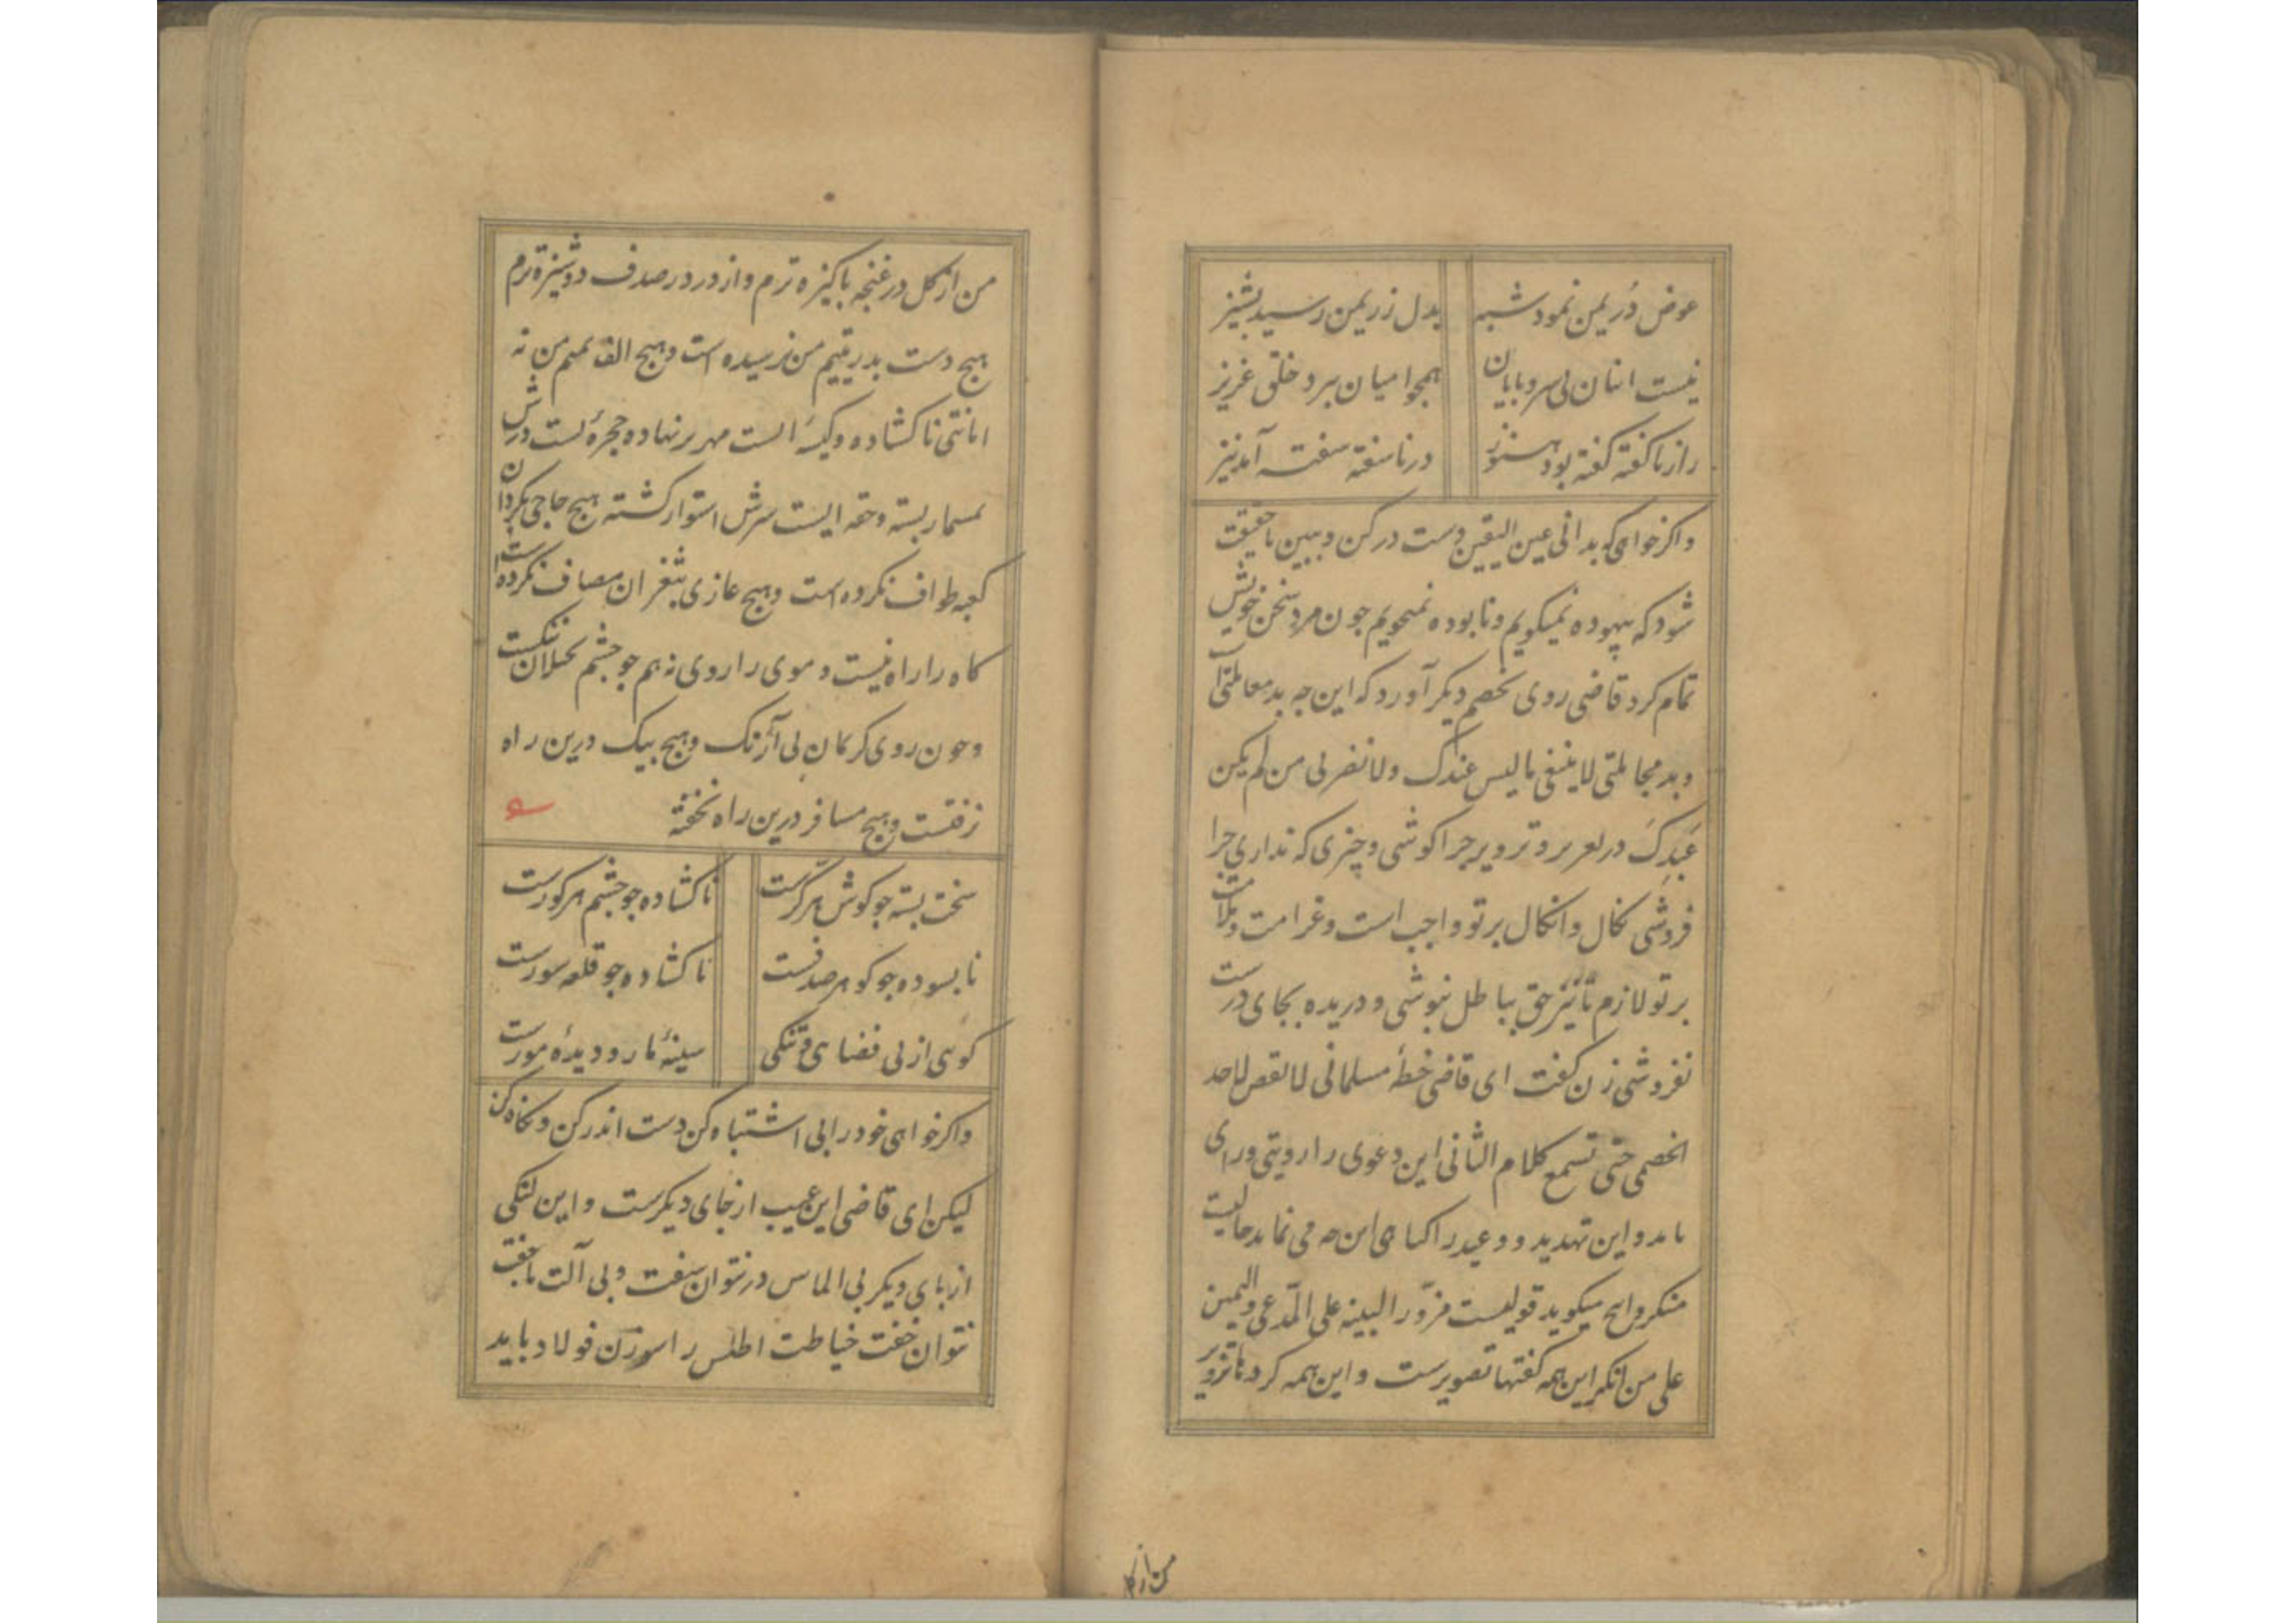 عوض دُر بمن نمود شبه بدل زر بمن رسید پشیز
نیست انبان بی سر و پایان همچو امیان سر و خلق عزیز
راز ناکفته کفته بود هنوز در ناسفته سفته آمد نیز
و اکر خواهی که بدانی عین الیقین دست در کن و ببین تا حقیقت
شود که بیهوده نمیکویم و نابوده نمیجویم چون مرد سخن خویش
تمام کرد قاضی روی بخصم دیکر آورد که این چه بد معاملتی است
و بد مجاملتی لا ینبغی ما لیس عندک ولا تضربی من لم یکن
عَبدِکَ در تعزیر و تزویر چرا کوشی و چیزی که نداری چرا
فروشی نکال و انکال بر تو واجب است و غرامت و ملامت
بر تو لازم تا نیز حق بباطل نپوشی و دریده بجای درست
نفروشی زن کفت ای قاضی خطهٔ مسلمانی لا تقض لاحد
الخصمی حتی تسمع کلام الثانی این دعوی را رویتی و رای
باید و این تهدید و وعید را کناهی این چه می نماید حالیت
منکر و آنچ میکوید قولیست مزوّر البینه علی المدّعی والیمین
علی من انکر این همه کفتها تصویرست و این همه کردها تزویر
من از کل
من از کل در غنچه پاکیزه ترم و از در در صدف دوشیزه ترم
هیچ دست بدر یتیم من نرسیده است و هیچ الف بمیم من نه
امانتی ناکشاده و کیسهٔ است مهر بر نهاده حجرهٔ است درش
بمسمار بسته و حقه ایست سرش استوار کشته هیچ حاجی بکرد آن
کعبه طواف نکرده است و هیچ غازی بثغر آن مصاف نکرده است
کاه را راه نیست و موی را روی نه هم چو چشم بخیلان تنکست
و چون روی کریمان بی آژنک و هیچ پیک درین راه
نرفتست و هیچ مسافر درین راه نخفته
سخت بسته چو کوش هر کرست ناکشاده چو چشم هر کورست
نابسوده چو کوهر صدفست ناکشاده چو قلعه سورست
کوئی از بی فضایی و تنکی سینهٔ مار و دیدهٔ مورست
و اکر خواهی خود را بی اشتباه کن دست اندر کن و نکاه کن
لیکن ای قاضی این عیب از جای دیکرست و این لنکی
از پای دیکر بی الماس در نتوان سفت و بی آلت با جفت
نتوان خفت خیاطت اطلس را سوزن فولاد باید